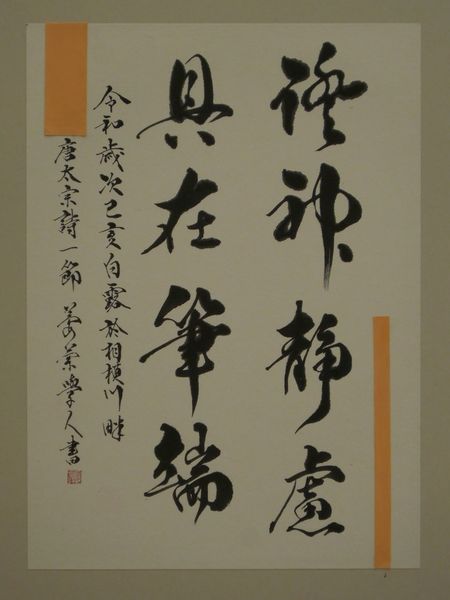 澄神静慮
具在筆端
令和歳次己亥白露於相模川畔
唐太宗詩一節 學人書